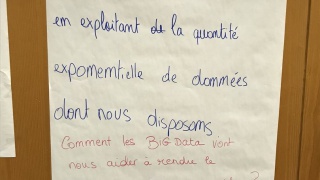 en exploitant la quantité
exponentielle de données
dont nous disposons
Comment les BIG Data vont
nous aider à rendre le
?